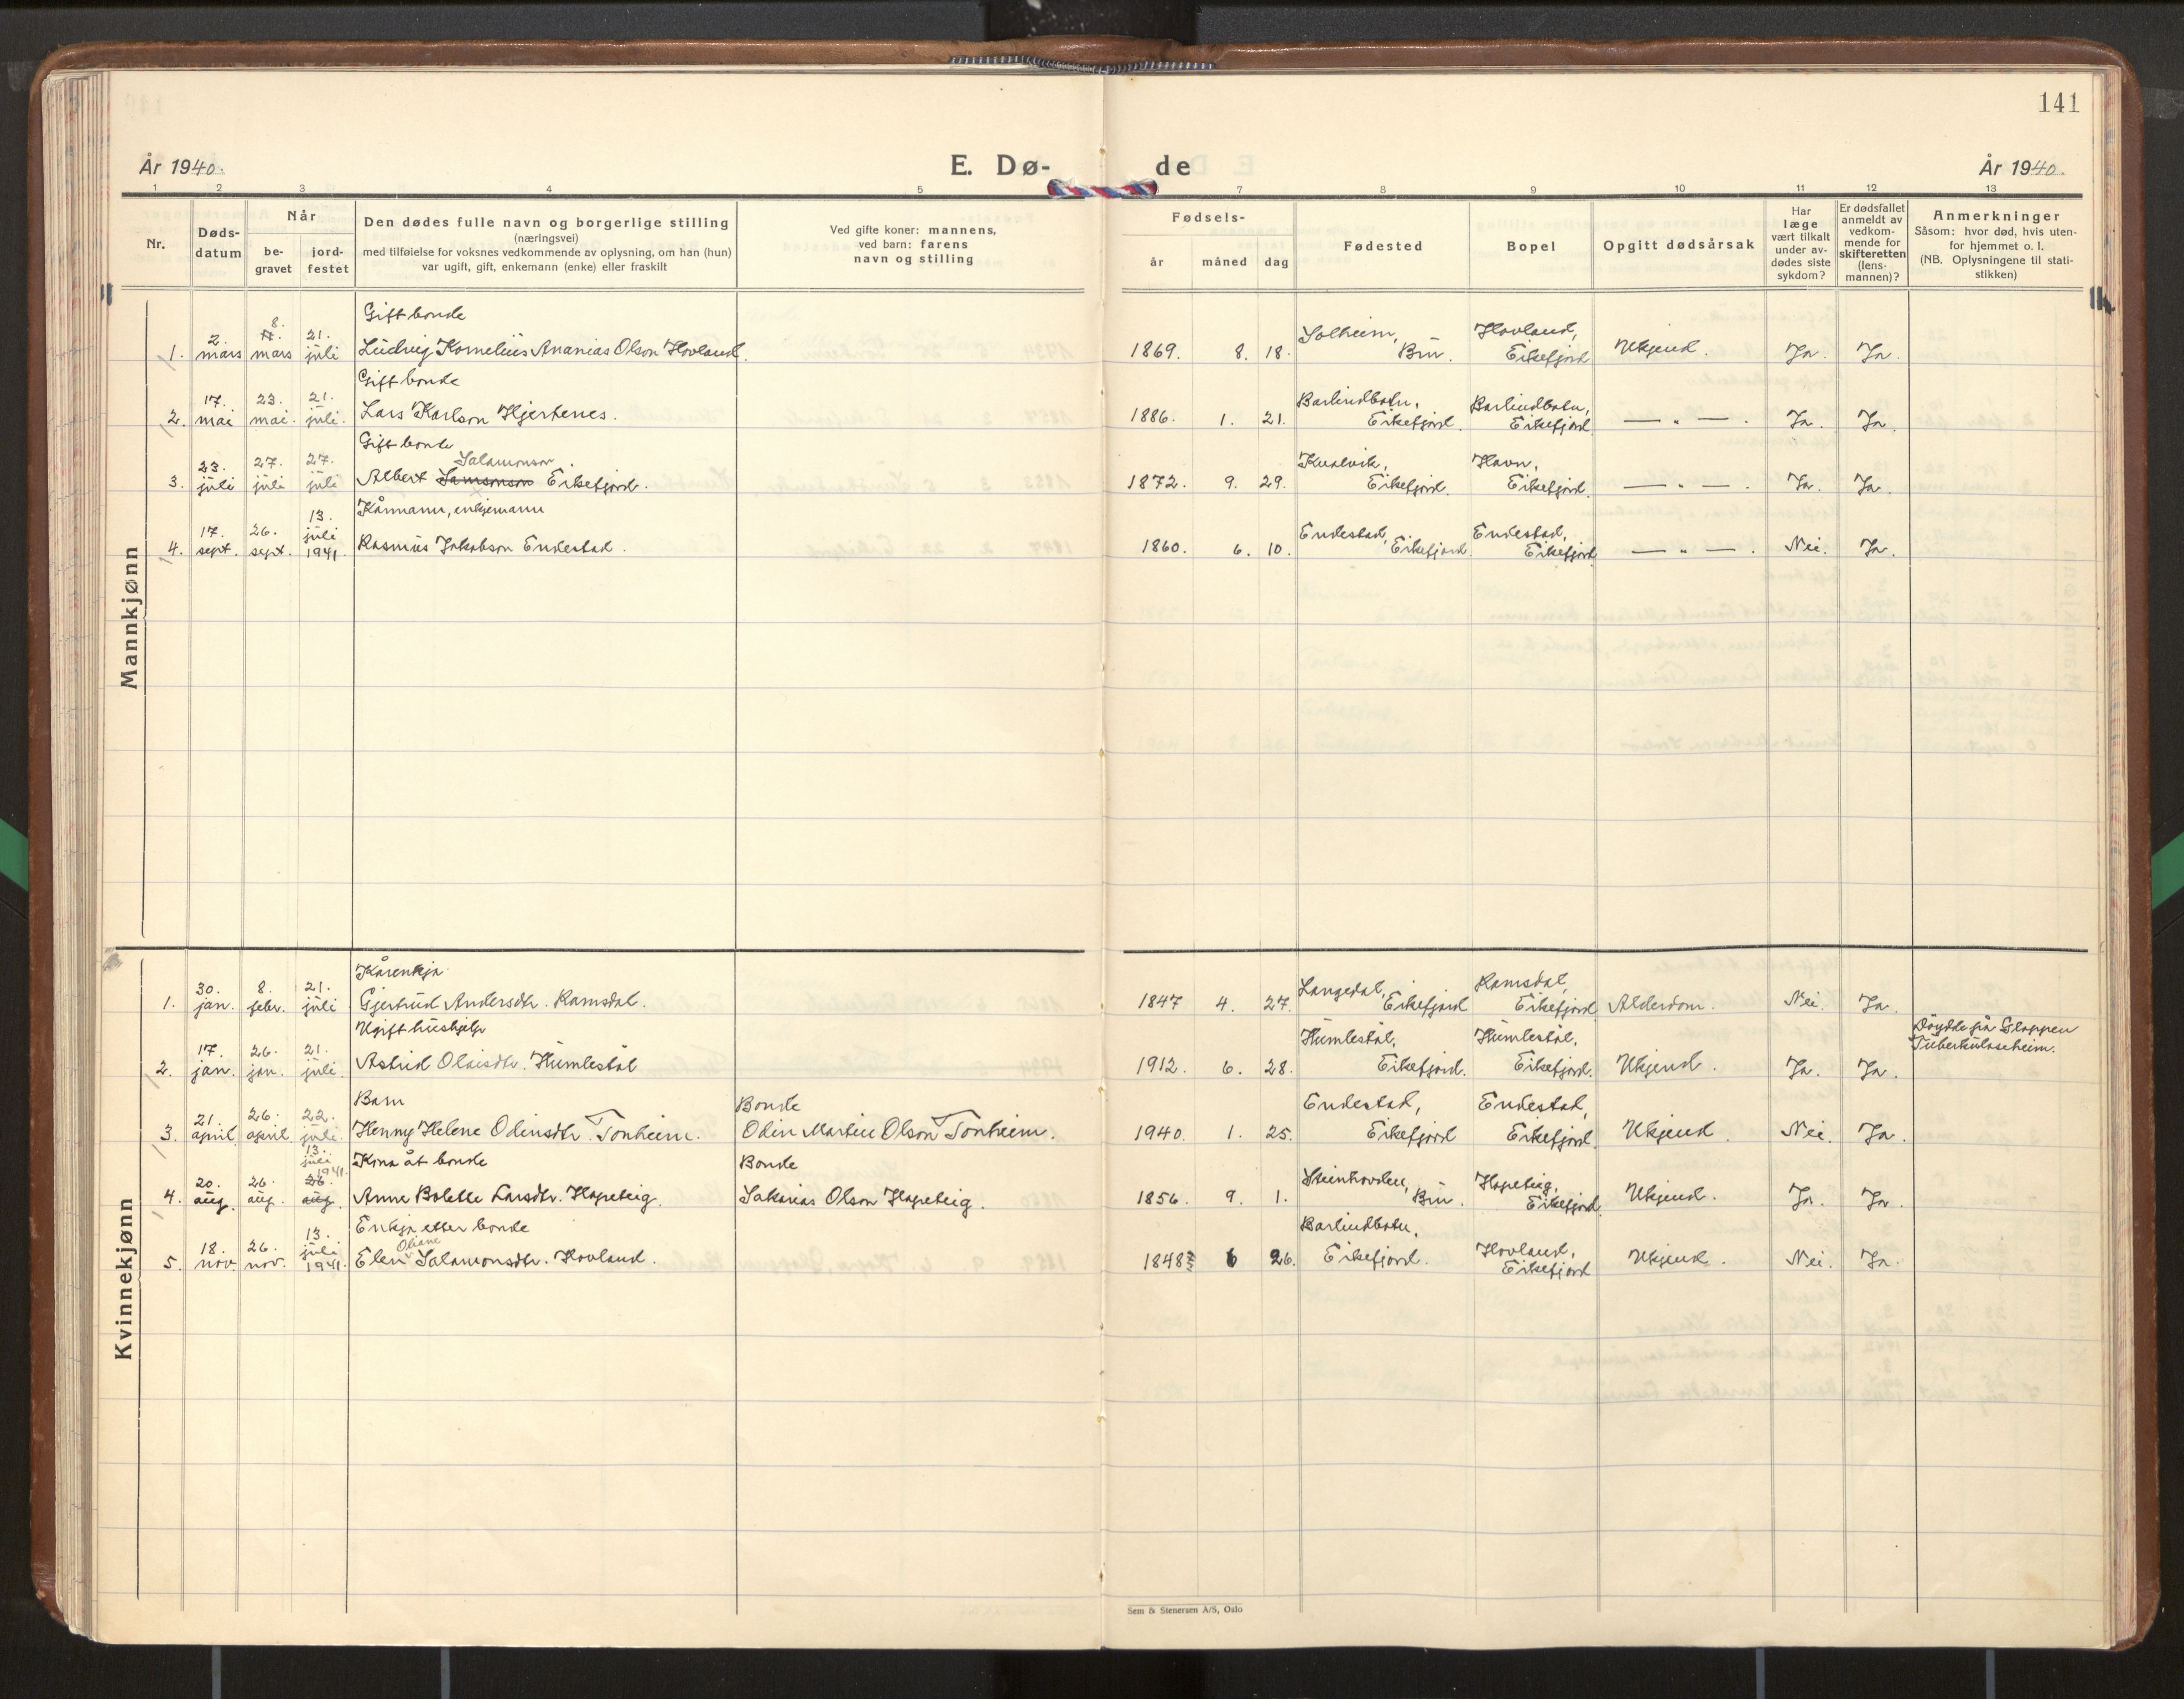 141
År 1940.
E. Dø-
de
År 1940.
1 2 3 4 5 7 8 9 10 11 12 13
Nr.
Døds-
datum
Når
be-
gravet
jord-
festet
Den dødes fulle navn og borgerlige stilling
(næringsvei)
med tilføielse for voksnes vedkommende av oplysning, om han (hun)
var ugift, gift, enkemann (enke) eller fraskilt
Ved gifte koner: mannens,
ved barn: farens
navn og stilling
Fødsels-
år måned dag
Fødested
Bopel
Opgitt dødsårsak
Har
læge
vært tilkalt
under av-
dødes siste
sykdom?
Er dødsfallet
anmeldt av
vedkom-
mende for
skifteretten
(lens-
mannen)?
Anmerkninger
Såsom: hvor død, hvis uten-
for hjemmet o. l.
(NB. Oplysningene til stati-
stikken)
Mannkjønn
Gift bonde
2. 8. 21. Solheim, Hovland,
1. mars mars juli Ludvig Kornelius Ananias Olson Hovland. 1869. 8. 18. Bru. Eikefjord Ukjend. Ja. Ja.
Gift bonde
17. 23. 21. Barlindbotn, Barlindbotn,
2. mai mai. juli. Lars Karlson Hjertenes. 1886. 1. 21. Eikefjord. Eikefjord. — " — . Ja. Ja.
Gift bonde
23. 27. 27. Salamonson Kvalvik, Havn,
3. juli juli juli Albert Samsonson Eikefjord. 1872. 9. 29. Eikefjord. Eikefjord. — " — . Ja. Ja.
Kårmann, enkjemann
17. 26. 13. juli Endestad, Endestad,
4. sept. sept. 1941. Rasmus Jakobson Endestad. 1860. 6. 10. Eikefjord. Eikefjord. — " — . Nei. Ja.
Kvinnekjønn
Kårenkja
30. 8. 21. Langedal, Ramsdal,
1. jan. febr. juli Gjertrud Andersdtr. Ramsdal. 1847 4. 27. Eikefjord Eikefjord Alderdom. Nei. Ja.
Ugift hushjelp Døydde på Gloppen
17. 26. 21. Humlestøl, Humlestøl, Tuberkuloseheim.
2. jan. jan. juli. Astrid Olaisdtr. Humlestøl 1912. 6. 28. Eikefjord. Eikefjord. Ukjend. Ja. Ja.
Barn Bonde
21. 26. 22. Endestad, Endestad,
3. april april juli. Henny Helene Odinsdtr. Tonheim. Odin Martin Olson Tonheim. 1940. 1. 25. Eikefjord Eikefjord. Ukjend. Nei. Ja.
13. juli 1941. Kona åt bonde Bonde
20. 26. 26. Steinhovden, Hopeteig,
4. aug. aug. aug. Anne Bolette Larsdtr. Hopeteig. Sakarias Olson Hopeteig. 1856. 9. 1. Bru. Eikefjord. Ukjend. Ja. Ja.
Enkja etter bonde Barlindbotn,
18. 26. 13. juli Oliane Hovland,
5. nov. nov. 1941. Elen Salamonsdtr. Hovland. 1848 6 26. Eikefjord. Eikefjord Ukjend. Nei. Ja.
Sem & Stenersen A/S, Oslo